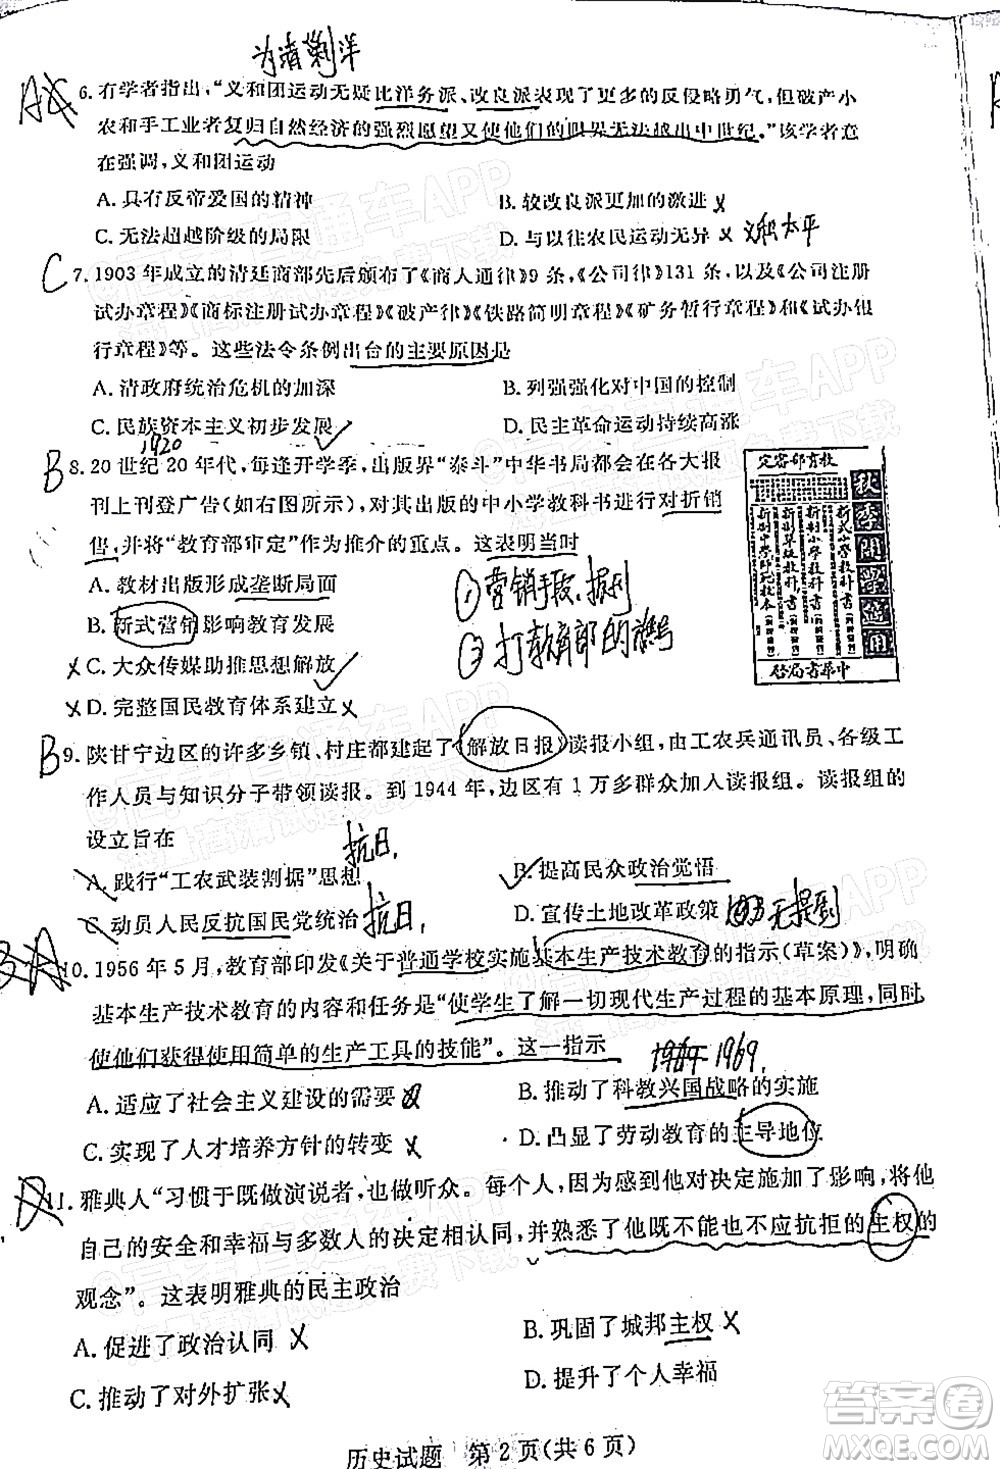 为清剿洋
6. 有学者指出，“义和团运动无疑比洋务派、改良派表现了更多的反侵略勇气，但破产小
农和手工业者复归自然经济的强烈愿望又使他们的眼界无法越出中世纪。”该学者意
在强调，义和团运动
A. 具有反帝爱国的精神
B. 较改良派更加的激进
C. 无法超越阶级的局限
D. 与以往农民运动无异
C 7. 1903 年成立的清廷商部先后颁布了《商人通律》9 条，《公司律》131 条，以及《公司注册
试办章程》《商标注册试办章程》《破产律》《铁路简明章程》《矿务暂行章程》《试办银
行章程》等。这些法令条例出台的主要原因是
A. 清政府统治危机的加深
B. 列强强化对中国的控制
C. 民族资本主义初步发展
D. 民主革命运动持续高涨
1920
B 8. 20 世纪 20 年代，每逢开学季，出版界“泰斗”中华书局都会在各大报
刊上刊登广告（如右图所示），对其出版的中小学教科书进行对折销
售，并将“教育部审定”作为推介的重点。这表明当时
A. 教材出版形成垄断局面
B. 新式营销影响教育发展
C. 大众传媒助推思想解放
D. 完整国民教育体系建立
①营销手段：报刊
②打教育部的旗号
定审部育教
秋季开学适用
启局书华中
B 9. 陕甘宁边区的许多乡镇、村庄都建起了《解放日报》读报小组，由工农兵通讯员、各级工
作人员与知识分子带领读报。到 1944 年，边区有 1 万多群众加入读报组。读报组的
设立旨在
抗日.
A. 践行“工农武装割据”思想
B. 提高民众政治觉悟
C. 动员人民反抗国民党统治
抗日.
D. 宣传土地改革政策
无提到
10. 1956 年 5 月，教育部印发《关于普通学校实施基本生产技术教育的指示（草案）》，明确
基本生产技术教育的内容和任务是“使学生了解一切现代生产过程的基本原理，同时
使他们获得使用简单的生产工具的技能”。这一指示
1969.
A. 适应了社会主义建设的需要
B. 推动了科教兴国战略的实施
C. 实现了人才培养方针的转变
D. 凸显了劳动教育的主导地位
11. 雅典人“习惯于既做演说者，也做听众。每个人，因而对他对决定施加了影响，将他
自己的安全和幸福与多数人的决定相认同，并熟悉了他既不能也不应抗拒的主权的
观念”。这表明雅典的民主政治
A. 促进了政治认同
B. 巩固了城邦主权
C. 推动了对外扩张
D. 提升了个人幸福
历史试题 第 2 页(共 6 页)
答案圈
MXQE.COM